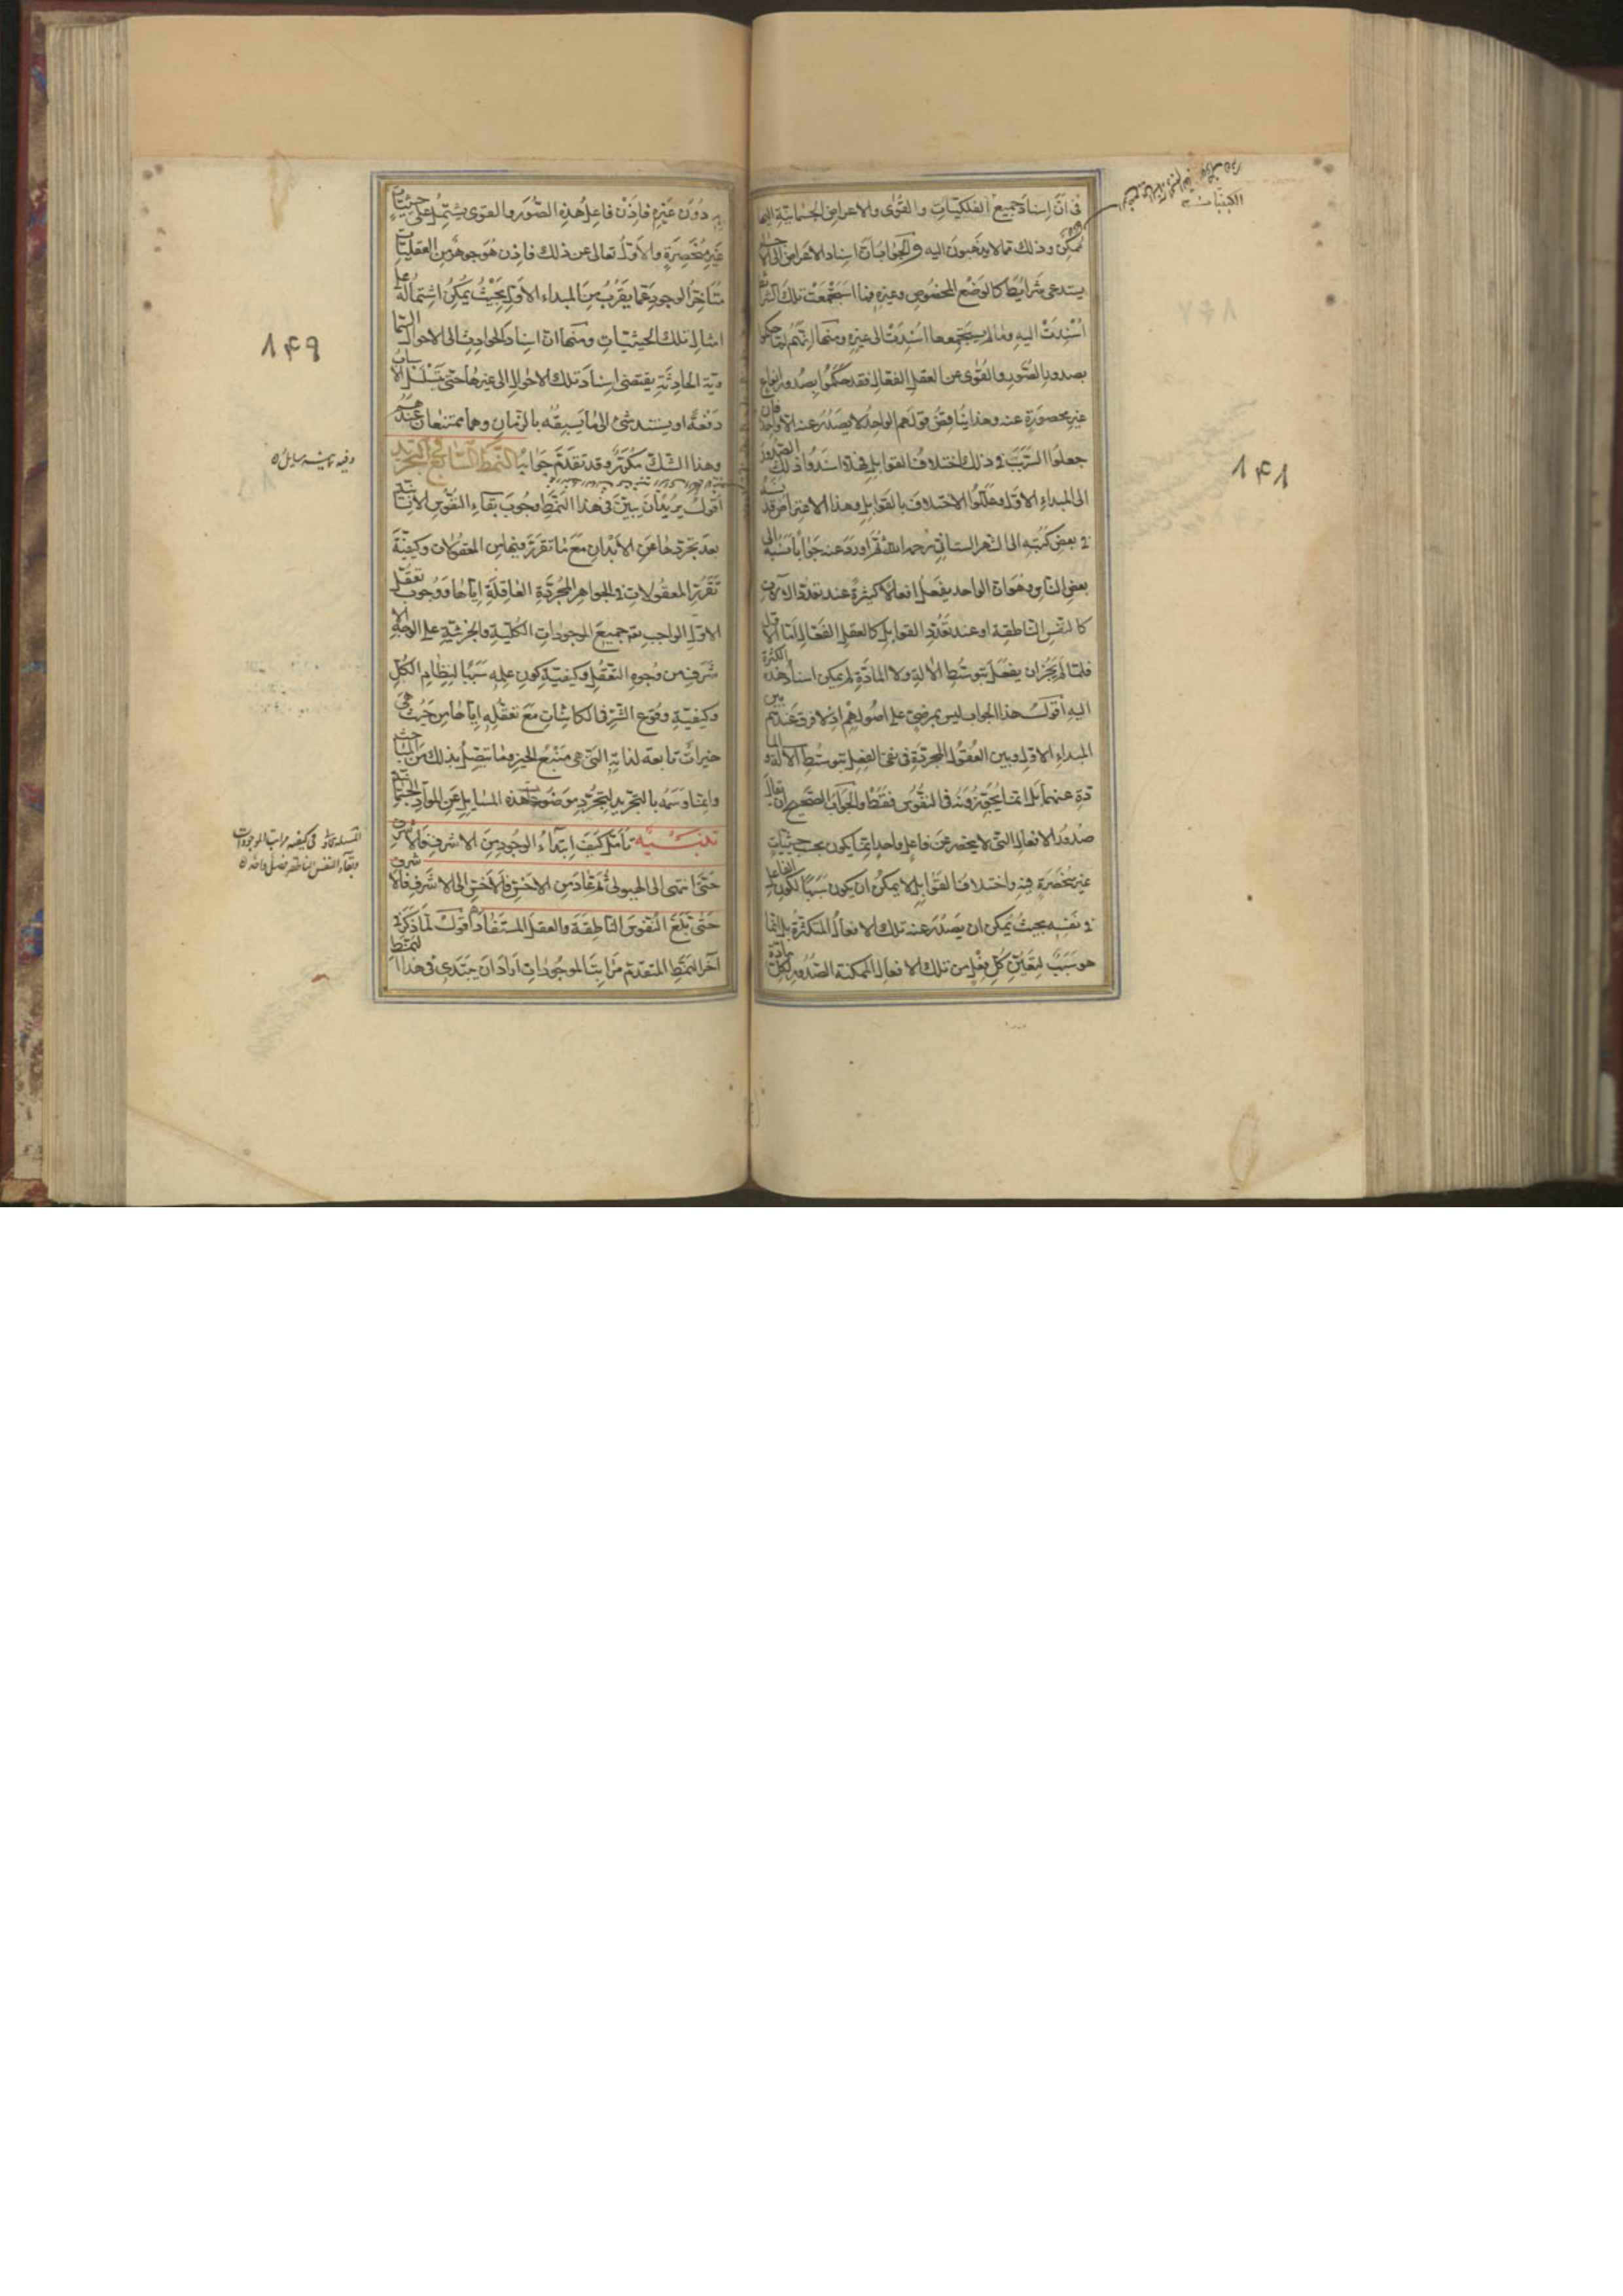 فى انّ اسناد جميع الفلكيات والقوى والاعراض الجسمانية اليها
ممكن وذلك مما لا يذهبون اليه والجواب ان اسناد الاعراض الى
يستدعى شرايط كالوضع المخصوص وغيره فما استجمعت تلك الشرائط
اسندت اليه وما لم يستجمعها اسندت الى غيره ومنها انهم لما حكموا
بصدور الصور والقوى عن العقل الفعال فقد حكموا بصدور انواع
غير محصورة عنه وهذا يناقض قولهم الواحد لا يصدر عنه الا واحد فان
جعلوا السبب فى ذلك اختلاف القوابل فهلا اسندوا ذلك الصدور
الى المبداء الاول وعللوا الاختلاف بالقوابل وهذا الاعتراض قد نسبه
فى بعض كتبه الى الشهرستانى رحمه الله ثم اورد عنه جوابا نسبه الى
بعض الناس وهو ان الواحد يفعل افعالا كثيرة عند تعدد الالات
كالنفس الناطقة او عند تعدد القوابل كالعقل الفعال اما الاول
فلما لم يجز ان يفعل بتوسط الالة ولا المادة لم يمكن اسناد هذه الكثرة
اليه اقول هذا الجواب ليس بمرضى على اصولهم اذ لا فرق عندهم بين
المبداء الاول وبين العقول المجردة فى نفى الفعل بتوسط الالة والما
دة عنهما بل انما يجوزونه فى النفوس فقط والجواب الصحيح ان يقال
صدور الافعال التى لا ينحصر عن فاعل واحد انما يكون بحسب حيثيات
غير منحصرة فيه واختلاف القوابل لا يمكن ان يكون سببا لكون الفاعل
فى نفسه بحيث يمكن ان يصدر عنه تلك الافعال المتكثرة بل انما
هو سبب لتعين كل فعل من تلك الافعال الممكنة الصدور لكل مادة
١٤١
به دون غيره فاذن فاعل هذه الصور والقوى يشتمل على حيثيات
غير منحصرة والاول تعالى عن ذلك فاذن هو جوهر من العقليات
متاخر الوجود عما يقرب من المبداء الاول بحيث يمكن اشتماله على
امثال تلك الحيثيات ومنها ان اسناد الحوادث الى الاحوال السما
وية الحادثة يقتضى اسناد تلك الاحوال الى غيرها حتى يتسلسل الاسباب
دفعة او يستند شئ الى ما يسبقه بالزمان وهما ممتنعان عندهم
وهذا الشك مكرر وقد تقدم جوابه النمط السابع فى التجريد
اقول يريد ان يبين فى هذا النمط وجوب بقاء النفوس الانسانية
بعد تجردها عن الابدان مع ما تقرر فيها من المعقولات وكيفية
تقرر المعقولات فى الجواهر المجردة العاقلة اياها ووجوب تعقل
الاول الواجب ثم جميع الموجودات الكلية والجزئية على الوجه الا
شرف من وجوه التعقل وكيفية كون علمه سببا لنظام الكل
وكيفية وقوع الشر فى الكائنات مع تعقله اياها من حيث هى
خيرات تابعة لذاته التى هى منبع الخير وما يتصل بذلك من المباحث
وانما وسمه بالتجريد لتجرد موضوعات هذه المسايل عن المواد الجسمانية
تنبيه تأمل كيف ابتداء الوجود من الاشرف فالاشرف
حتى انتهى الى الهيولى ثم عاد من الاخس فالاخس الى الاشرف فالاشرف
حتى بلغ النفوس الناطقة والعقل المستفاد اقول لما ذكر فى
آخر النمط المتقدم مراتب الموجودات اراد ان يبتدى فى هذا النمط
١٤٩
وفيه ثمانية مسايل
المسئلة فى كيفية مراتب الموجودات
وبقاء النفس الناطقة فصل واحد